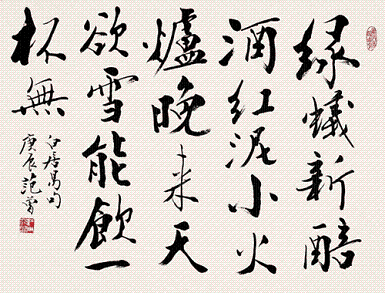 緑蟻新醅
酒紅泥小火
爐晚来天
欲雪能飲一
杯無
白居易句
庚辰范曾